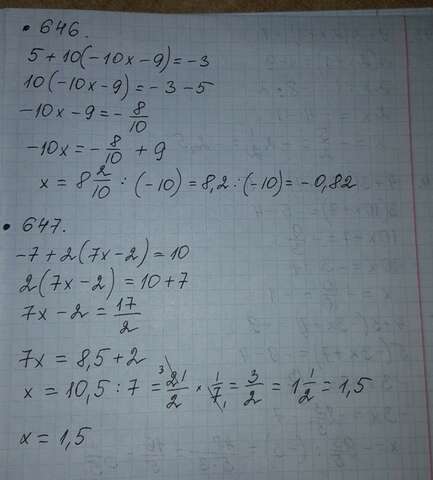 • 646.
5 + 10(-10x - 9) = -3
10(-10x - 9) = -3 - 5
-10x - 9 = -8/10
-10x = -8/10 + 9
x = 8 2/10 : (-10) = 8,2 : (-10) = -0,82
• 647.
-7 + 2(7x - 2) = 10
2(7x - 2) = 10 + 7
7x - 2 = 17/2
7x = 8,5 + 2
x = 10,5 : 7 = ³21/2 × 1/7₁ = 3/2 = 1 1/2 = 1,5
x = 1,5